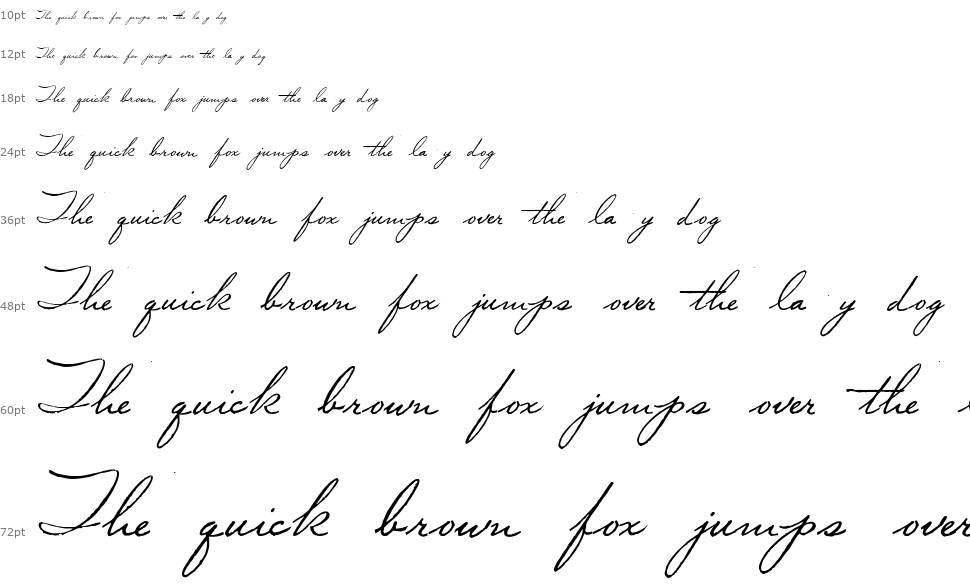 10pt The quick brown fox jumps over the la y dog
12pt The quick brown fox jumps over the la y dog
18pt The quick brown fox jumps over the la y dog
24pt The quick brown fox jumps over the la y dog
36pt The quick brown fox jumps over the la y dog
48pt The quick brown fox jumps over the la y dog
60pt The quick brown fox jumps over the
72pt The quick brown fox jumps over